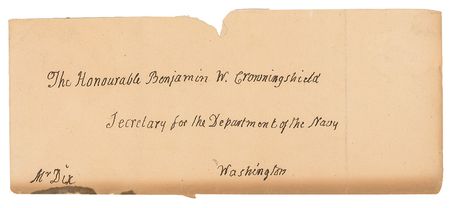 The Honourable Benjamin W. Crowningshield
Secretary for the Department of the Navy
Washington
Mr Dix